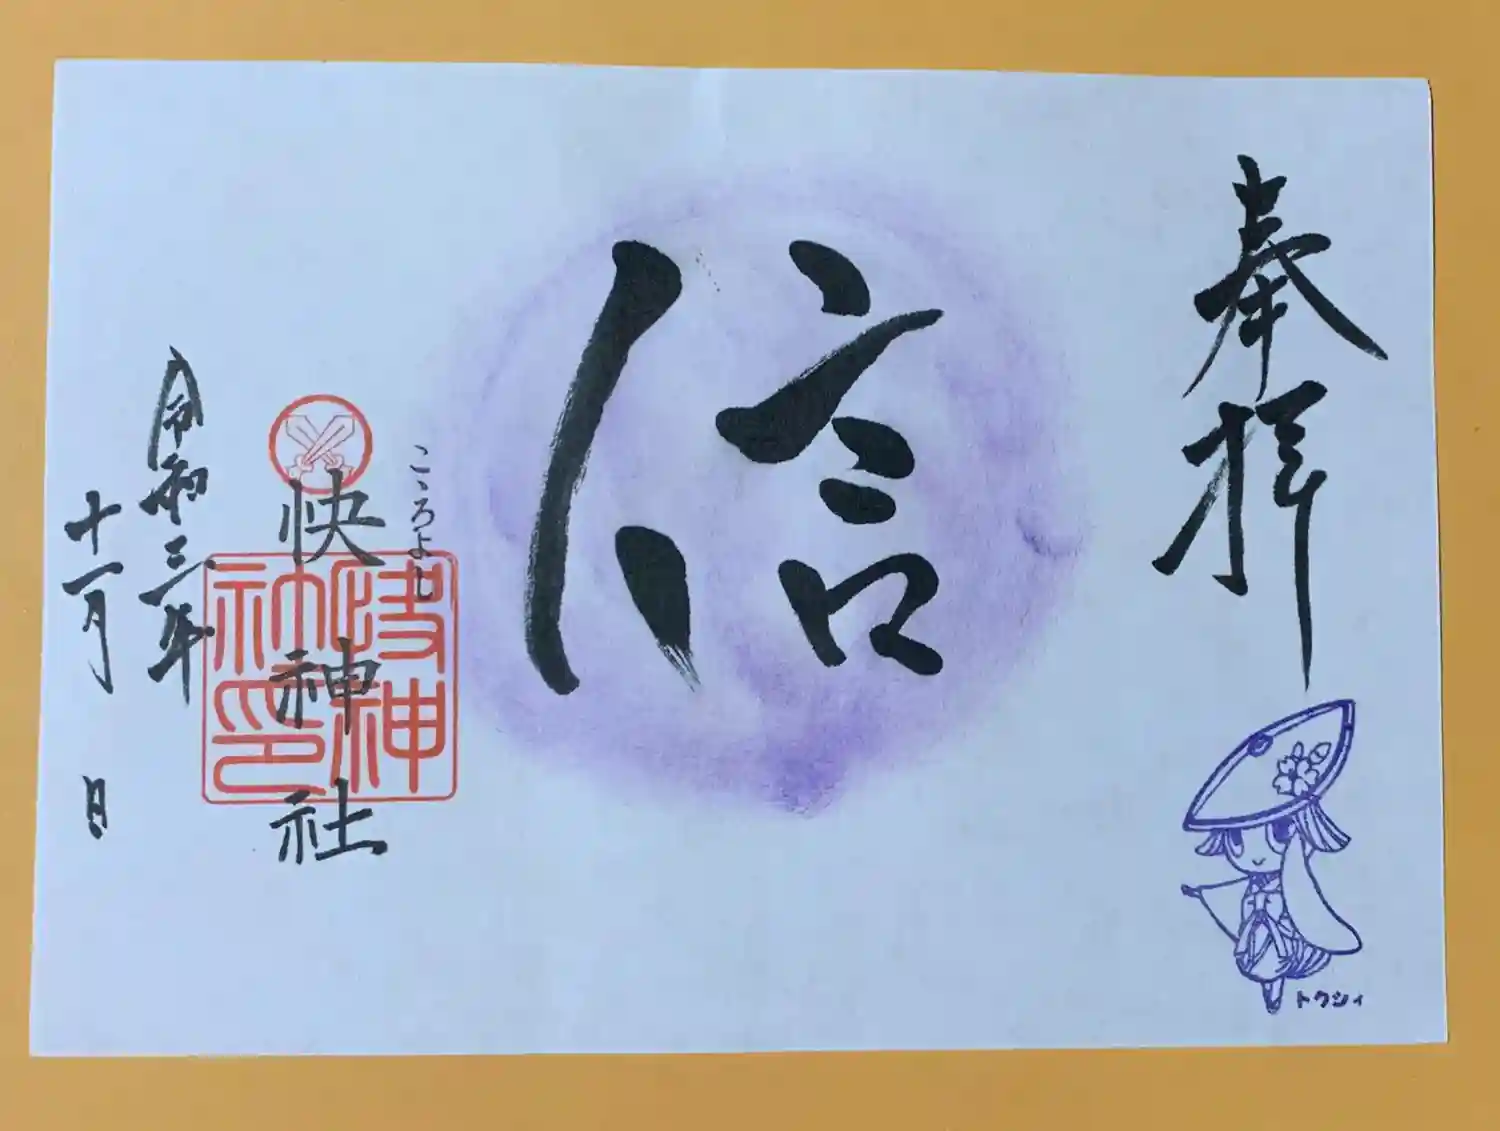 奉拝
信
こころよし
快神社
神
社印
令和三年
十一月 日
トクシィ